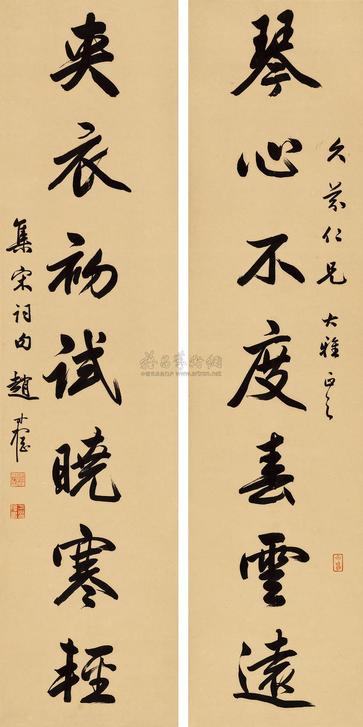 久芬仁兄大雅正之
琴心不度春雲遠
夾衣初試曉寒輕
集宋詞句趙叔孺